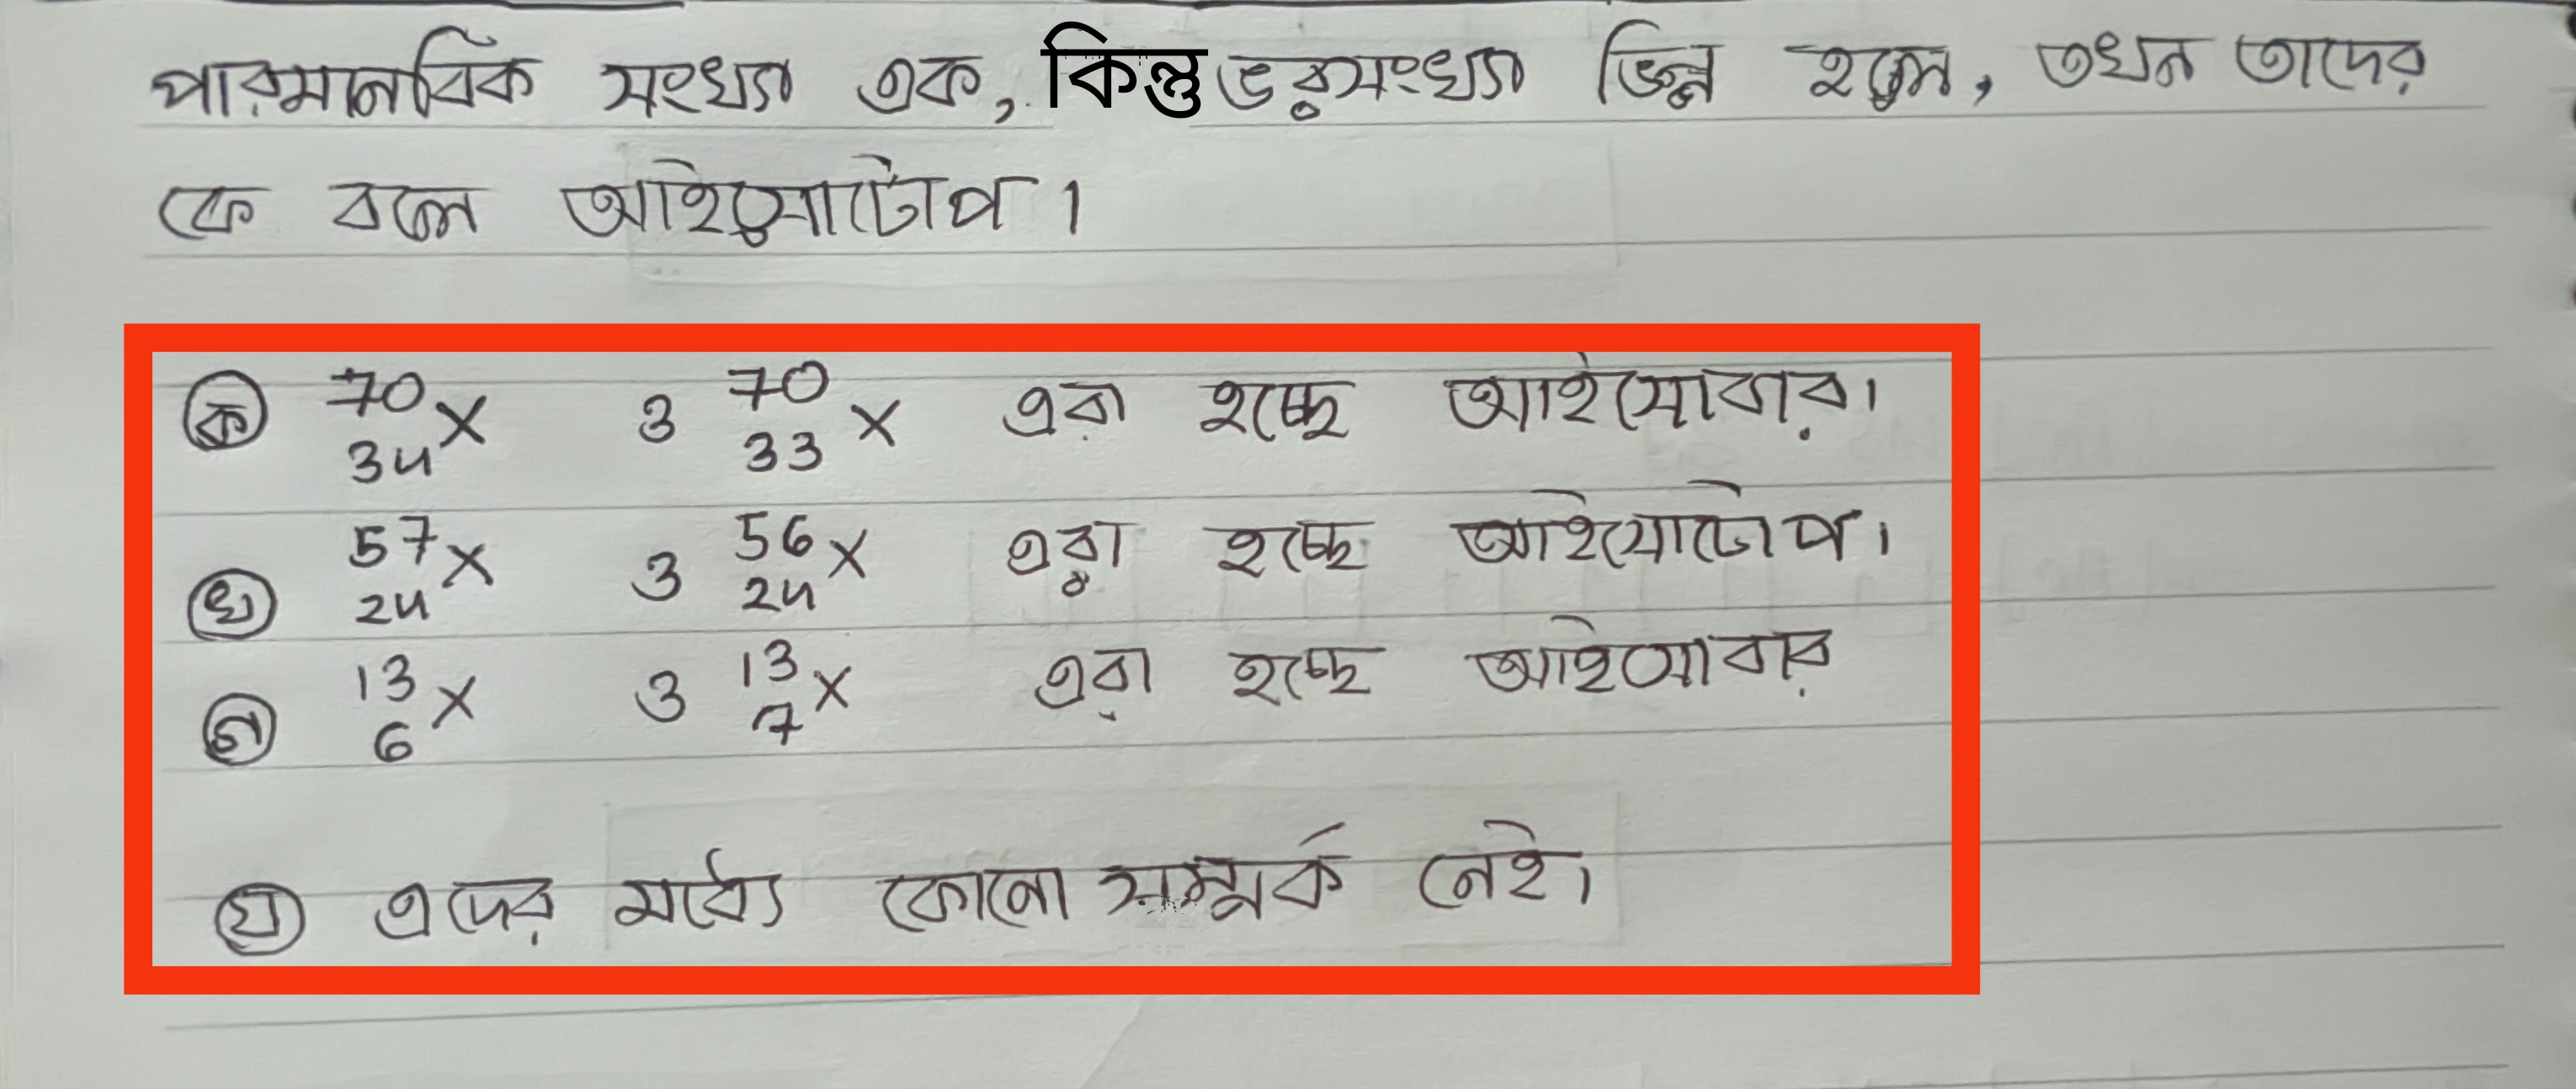 পারমানবিক সংখ্যা এক, কিন্তু ভরসংখ্যা ভিন্ন হলে, তখন তাদের
কে বলে আইসোটোপ।
70
ক X ও 70 X এরা হচ্ছে আইসোবার।
34 33
57 56
খ X ও X এরা হচ্ছে আইসোটোপ।
24 24
13 13
গ X ও X এরা হচ্ছে আইসোবার
6 7
ঘ এদের মধ্যে কোনো সম্পর্ক নেই।